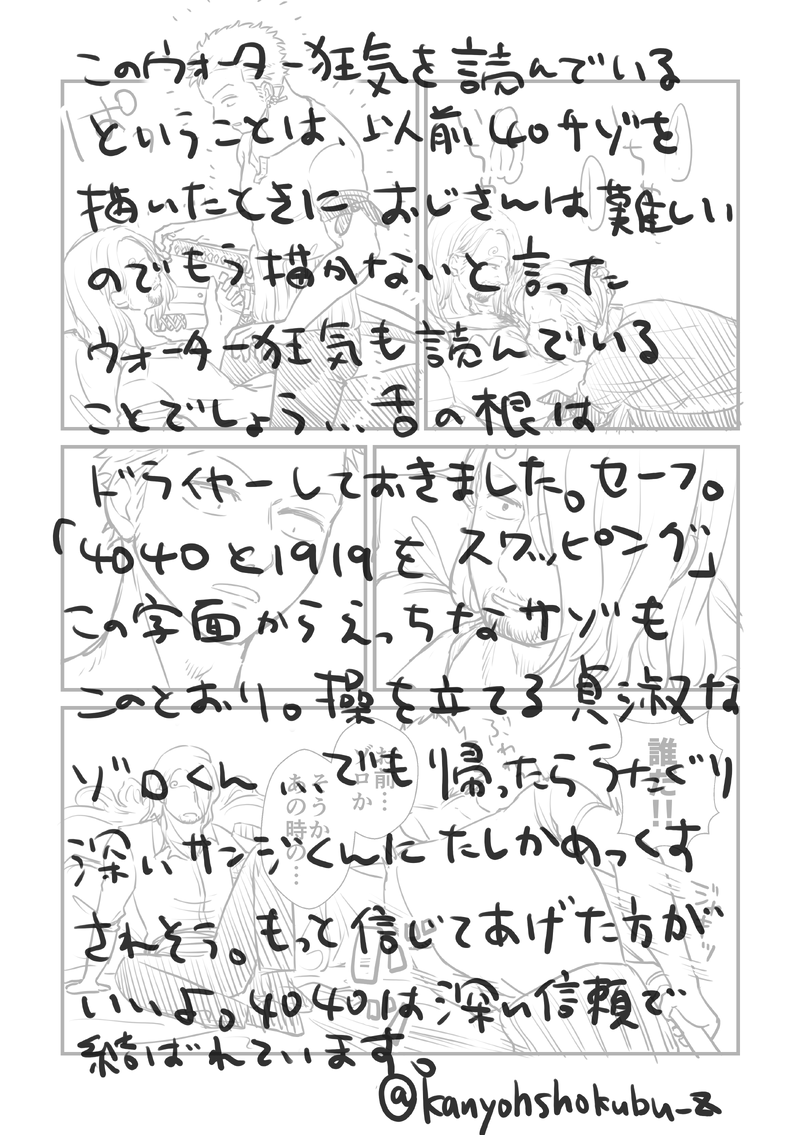 このウォーター狂気を読んでいる
ということは、以前40サゾを
描いたときに おじさんは難しい
のでもう描かないと言った
ウォーター狂気も読んでいる
ことでしょう…舌の根は
ドライヤーしておきました。セーフ。
「4040と1919をスワッピング」
この字面からえっちなサゾも
このとおり。操を立てる貞淑な
ゾロくん…でも帰ったらうたぐり
深いサンジくんにたしかめっくす
されそう。もっと信じてあげた方が
いいよ。4040は深い信頼で
結ばれています。
@kanyohshokubu_z
誰だ!!
お前…
ゾロか
そうか
あの時の…